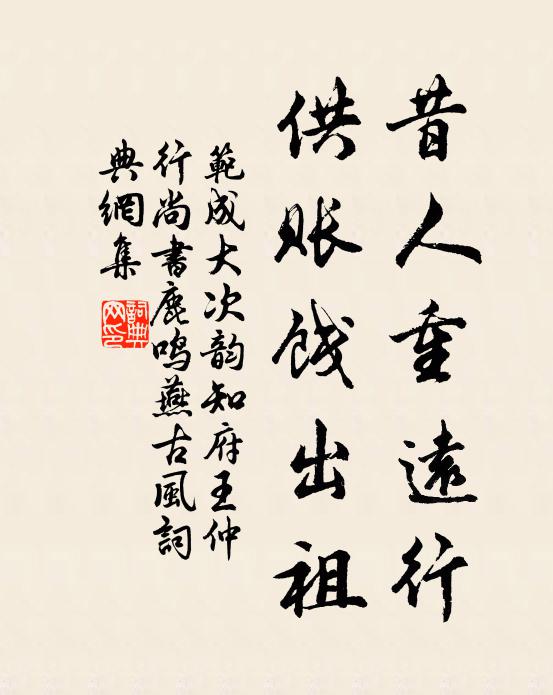 昔人重遠行
供账饯出祖
範成大次韵知府王仲
行尚書鹿鸣燕古風詞
典網集
詞典
网印